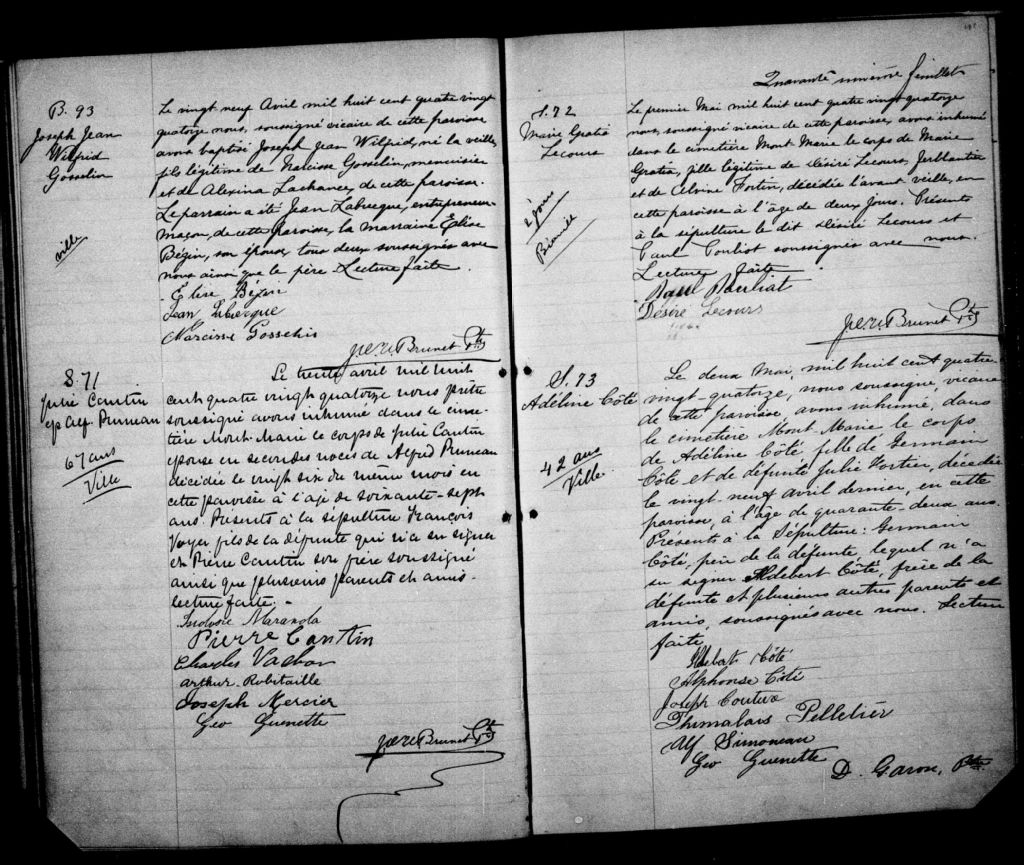 B. 93
Joseph Jean
Wilfrid
Gosselin
ville
Le vingt neuf Avril mil huit cent quatre vingt
quatorze nous, soussigné vicaire de cette paroisse
avons baptisé Joseph Jean Wilfrid, né la veille,
fils légitime de Narcisse Gosselin, menuisier
et de Alexina Lachance, de cette paroisse.
Le parrain a été Jean Labrecque, entrepreneur-
maçon, de cette paroisse, la marraine Elise
Bégin, son épouse, tous deux soussignés avec
nous ainsi que le père. Lecture faite.
Elise Bégin
Jean Labrecque
Narcisse Gosselin
Brunet Ptre
S. 71
Julie Cantin
ep Alf. Pruneau
67 ans
Ville
Le trente avril mil huit
cent quatre vingt quatorze nous prêtre
soussigné avons inhumé dans le cime-
tière Mont-Marie le corps de Julie Cantin
épouse en secondes noces de Alfred Pruneau
décidée le vingt six du même mois en
cette paroisse à l'age de soixante-sept
ans. Présents à la sépulture François
Voyer fils de la défunte qui n'a su signer
et Pierre Cantin son frère soussigné
ainsi que plusieurs parents et amis.
lecture faite.
Pierre Cantin
Charles Vachon
Arthur Robitaille
Joseph Mercier
Geo Guenette
Brunet Ptre
Quarante neuvième feuillet
S. 72
Marie Gratia
Lecours
2 jours
Bienville
Le premier Mai mil huit cent quatre vingt quatorze
nous, soussigné vicaire de cette paroisse, avons inhumé
dans le cimetière Mont Marie le corps de Marie
Gratia, fille légitime de Désiré Lecours, ferblantier
et de Alvine Fortin, décidée l'avant veille, en
cette paroisse à l'âge de deux jours. Présents
à la sépulture le dit Désiré Lecours et
Paul Pouliot soussignés avec nous
Lecture faite
Paul Pouliot
Désiré Lecours
Brunet Ptre
S. 73
Adéline Côté
42 ans
Ville.
Le deux Mai, mil huit cent quatre
vingt-quatorze, nous soussigné, vicaire
de cette paroisse, avons inhumé, dans
le cimetière Mont Marie le corps
de Adéline Côté, fille de Germain
Côté et de défunte Julie Fortier, décédée
le vingt-neuf avril dernier, en cette
paroisse, à l'âge de quarante-deux ans.
Présents à la Sépulture: Germain
Côté, père de la défunte, lequel n'a
su signer Aldebert Côté, frère de la
défunte et plusieurs autres parents et
amis, soussignés avec nous. Lecture
faite,
Côté
Alphonse Côté
Joseph Couture
Pelletier
Alf Simoneau
Geo Guenette
D. Garon, Ptre.